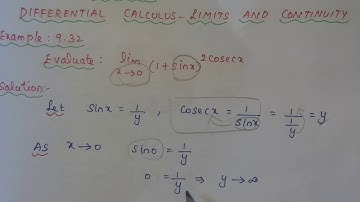 DIFFERENTIAL CALCULUS - LIMITS AND CONTINUITY
Example : 9.32
Evaluate : lim x→0 (1 + sinx)^2cosecx
Solution:-
Let sinx = 1/y , cosecx = 1/sinx = 1/(1/y) = y
As x→0 sin0 = 1/y
0 = 1/y ⇒ y→∞